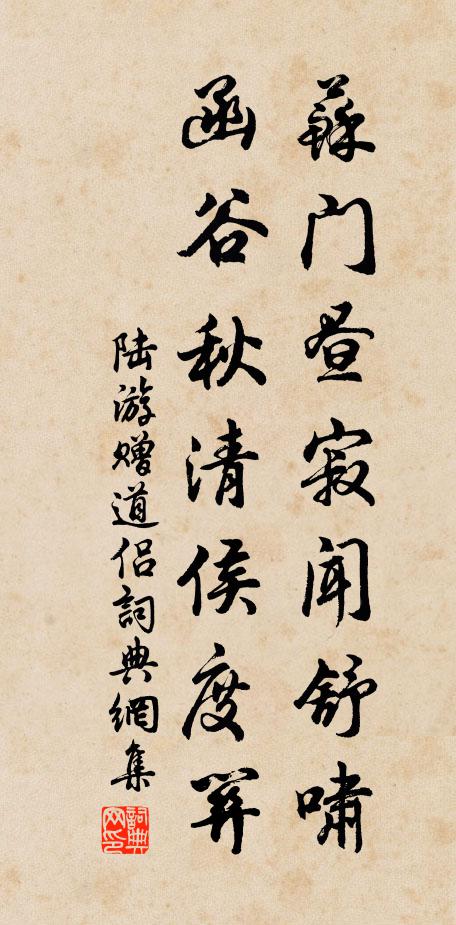 蘓门昼寂闻舒嘯
函谷秋清侯度关
陆游赠道侣詞典網集
詞典网印